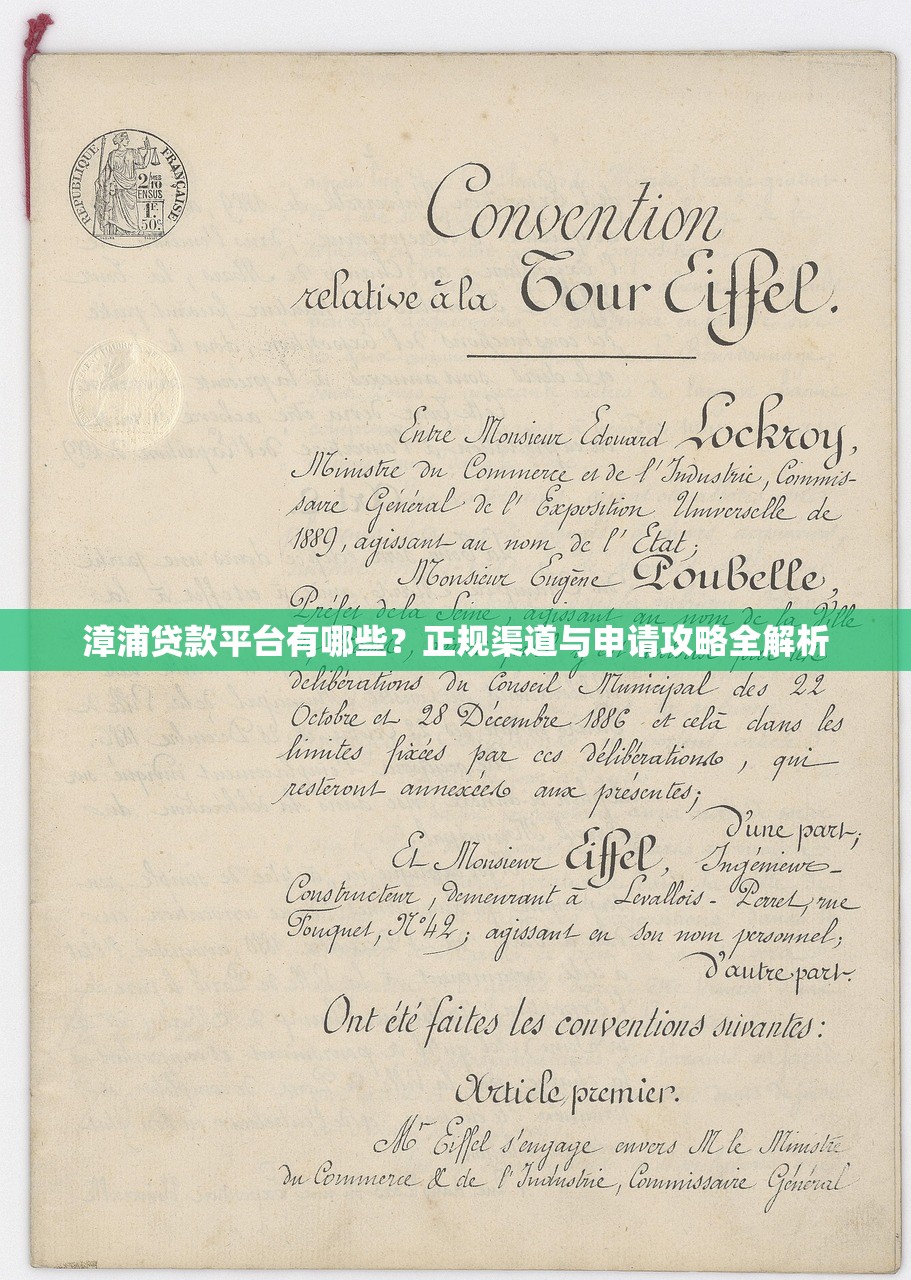 RÉPUBLIQUE FRANÇAISE
2/10
EN SUS
1F.
50c
Convention
relative à la Tour Eiffel.
Entre Monsieur Edouard Lockroy,
Ministre du Commerce et de l'Industrie, Commis-
saire Général de l'Exposition Universelle de
1889, agissant au nom de l'Etat;
Monsieur Eugène Poubelle,
Préfet de la Seine, agissant au nom de la Ville
漳浦贷款平台有哪些？正规渠道与申请攻略全解析
délibérations du Conseil Municipal des 22
Octobre et 28 Décembre 1886 et celà dans les
limites fixées par ces délibérations, qui
resteront annexées aux présentes;
d'une part;
Et Monsieur Eiffel, Ingénieur-
Constructeur, demeurant à Levallois-Perret, rue
Fouquet, N°42; agissant en son nom personnel;
d'autre part.
Ont été faites les conventions suivantes:
Article premier.
Mr Eiffel s'engage envers M le Ministre
du Commerce & de l'Industrie, Commissaire Général